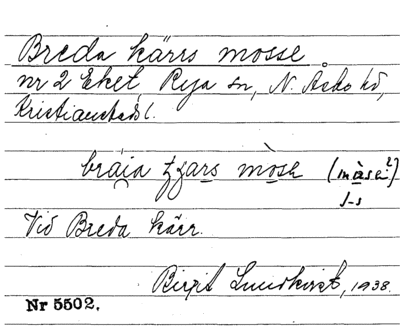 Breda kärrs mosse
nr 2 Eket, Rya sn, N. Åsbo hd,
Kristianstads l.
Vid Breda kärr.
Birgit Lundkvist, 1938.
Nr 5502.